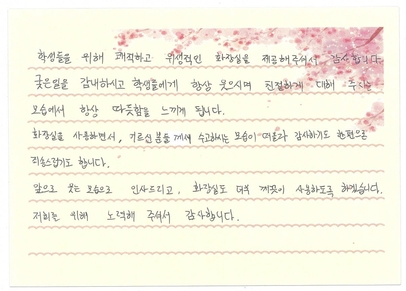 학생들을 위해 쾌적하고 위생적인 화장실을 제공해주셔서 감사합니다.
궂은일을 감내하시고 학생들에게 항상 웃으시며 친절하게 대해 주시는
모습에서 항상 따뜻함을 느끼게 됩니다.
화장실을 사용하면서, 수고하시는 모습이 떠올라 감사하기도 한편으론
죄송스럽기도 합니다.
앞으로 웃는 모습으로 인사드리고, 화장실도 더욱 깨끗이 사용하도록 하겠습니다.
저희를 위해 노력해 주셔서 감사합니다.